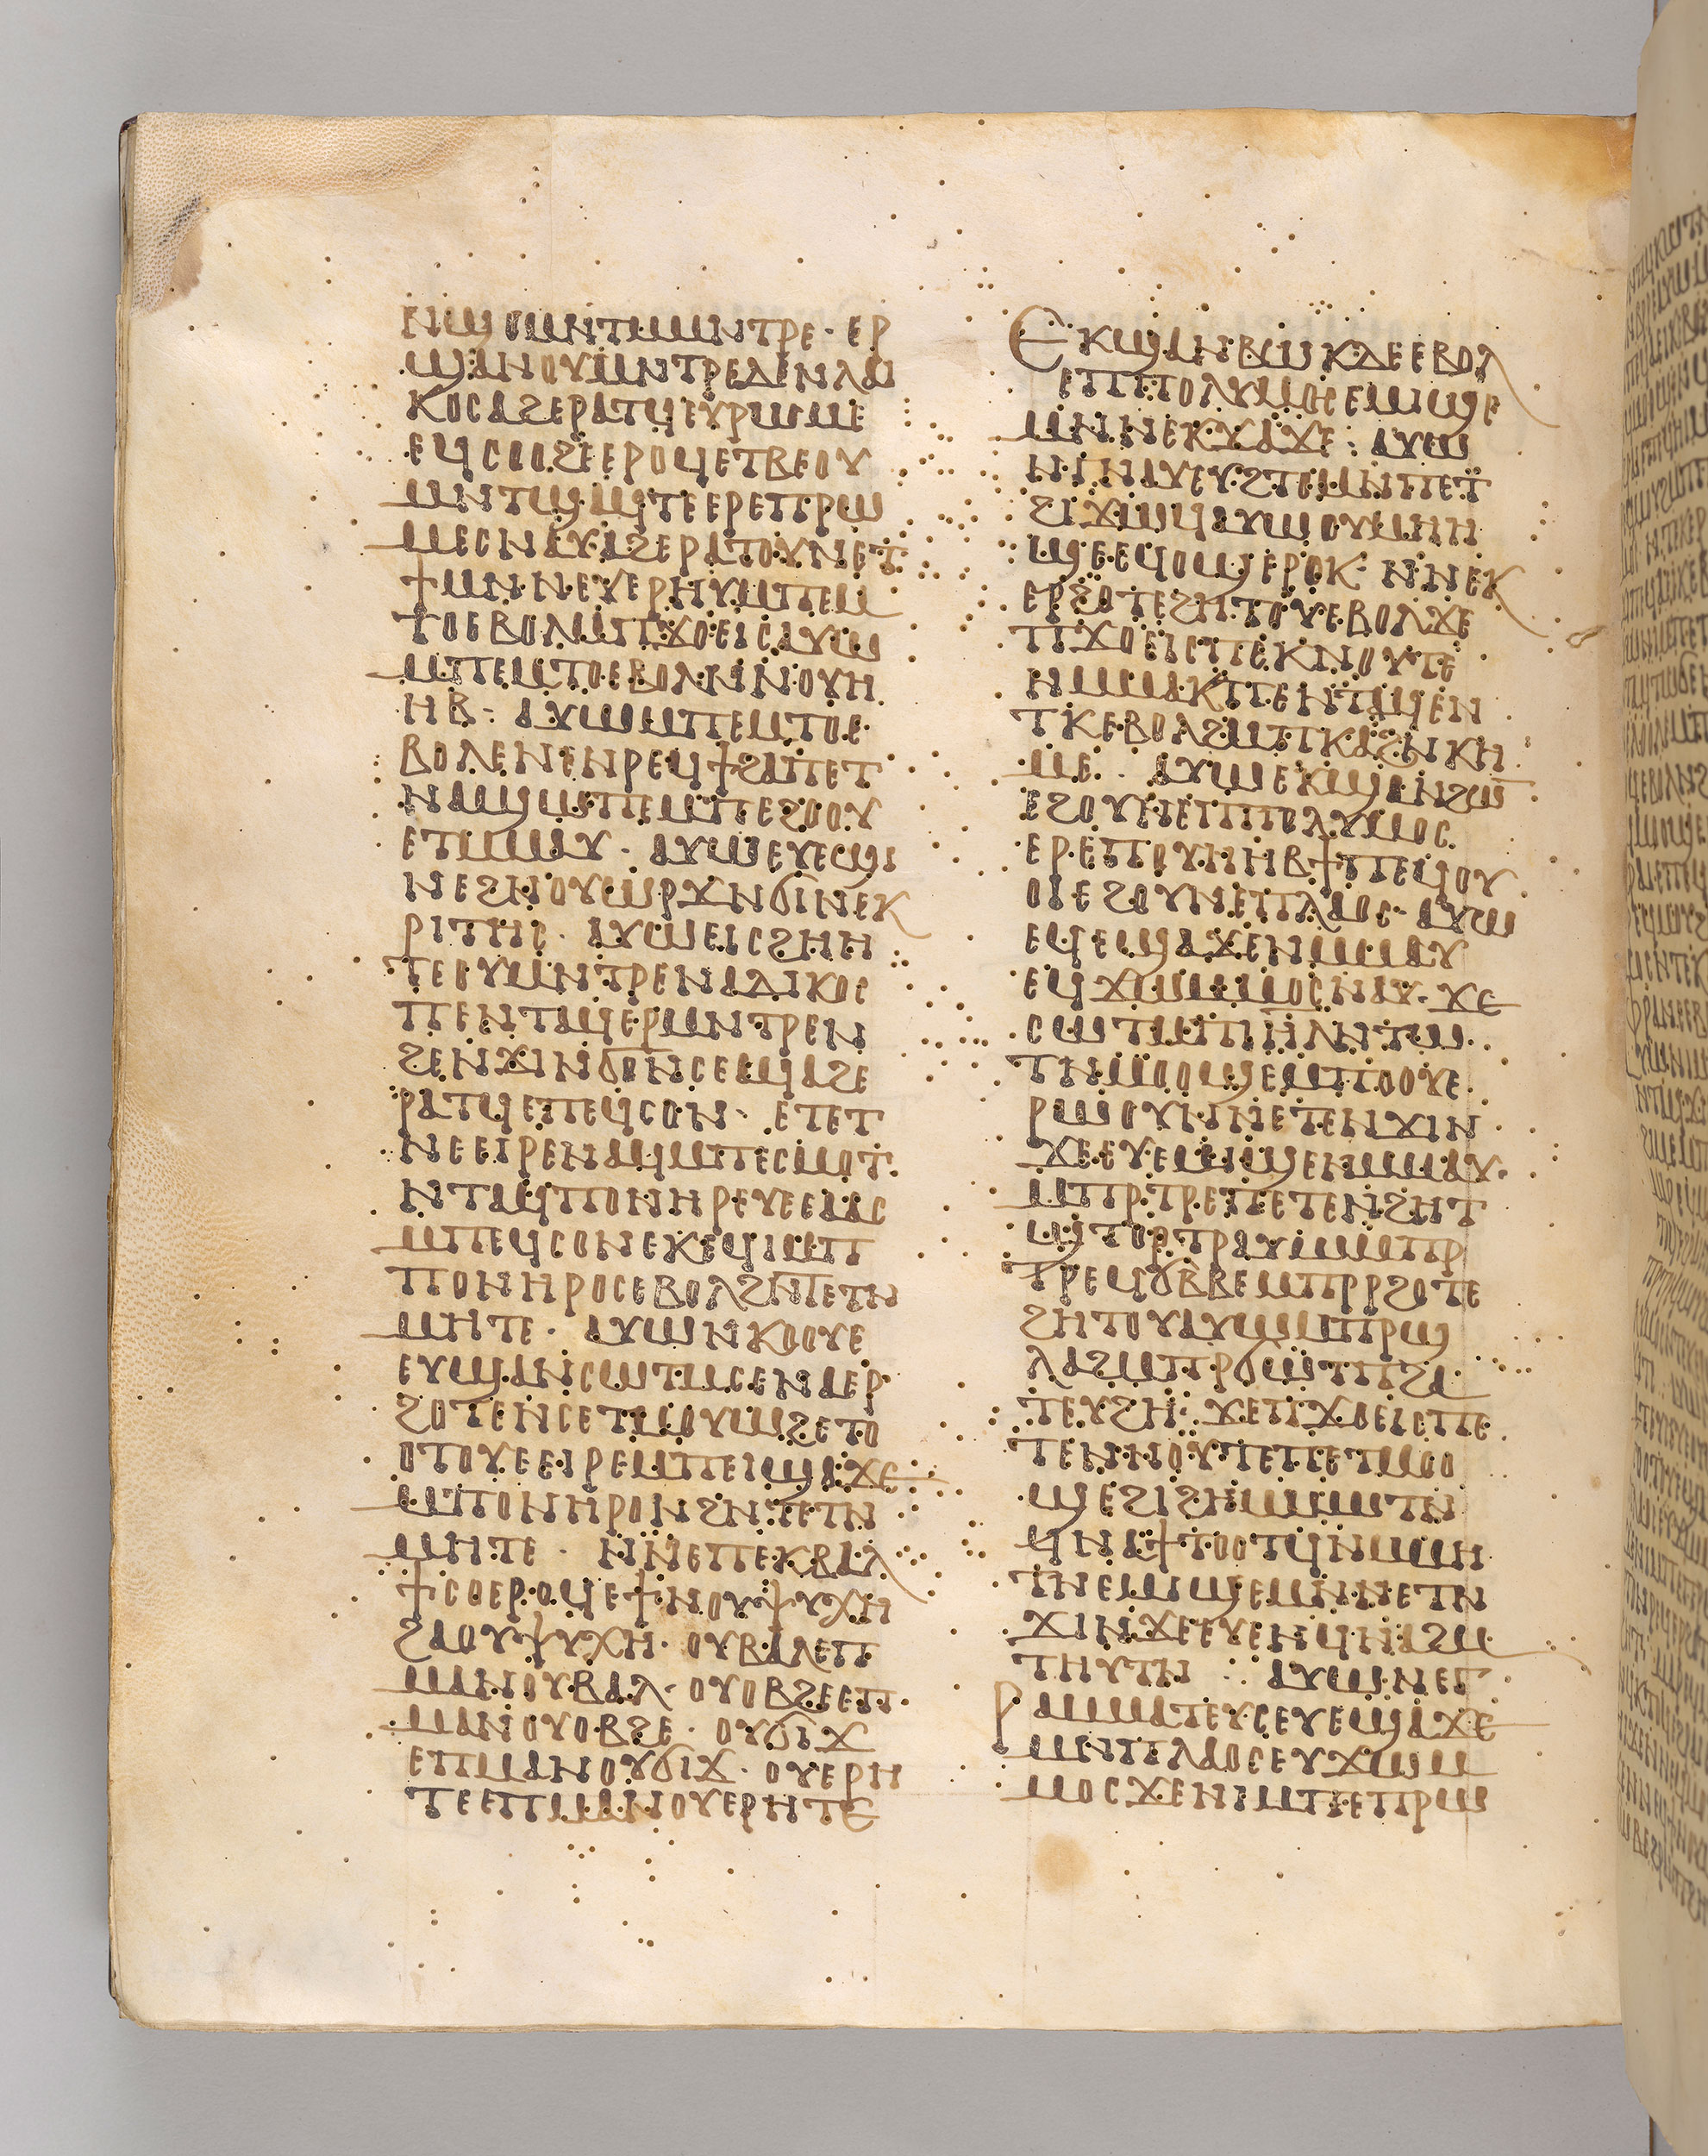 ⲛϣⲟⲙⲛⲧⲙⲙⲛⲧⲣⲉ· ⲉⲣ
ϣⲁⲛⲟⲩⲙⲛⲧⲣⲉⲇⲉⲛⲁⲇⲓ
ⲕⲟⲥⲁϩⲉⲣⲁⲧϥⲉⲩⲣⲱⲙⲉ
ⲉϥⲥⲟⲟϩⲉⲉⲣⲟϥⲉⲧⲃⲉⲟⲩ
ⲙⲛⲧϣⲁϥⲧⲉⲉⲣⲉⲡⲣⲱ
ⲙⲉⲥⲛⲁⲩⲁϩⲉⲣⲁⲧⲟⲩⲛⲉⲧ
ϯⲙⲛⲛⲉⲩⲉⲣⲏⲩⲙⲡⲉⲙ
ⲧⲟⲉⲃⲟⲗⲙⲡϫⲟⲉⲓⲥⲁⲩⲱ
ⲙⲡⲉⲙⲧⲟⲉⲃⲟⲗⲛⲛⲟⲩⲏ
ⲏⲃ· ⲁⲩⲱⲙⲡⲉⲙⲧⲟⲉ
ⲃⲟⲗⲉⲛⲉⲛⲣⲉϥϯϩⲁⲡⲉⲧ
ⲛⲁϣⲱⲡⲉⲙⲡⲉϩⲟⲟⲩ
ⲉⲧⲙⲙⲁⲩ· ⲁⲩⲱⲉⲩⲉϣⲓ
ⲛⲉϩⲛⲟⲩⲱⲣϫⲛϭⲓⲛⲉⲕ
ⲣⲓⲧⲏⲥ· ⲁⲩⲱⲉⲓⲥϩⲏⲏ
ⲧⲉⲟⲩⲙⲛⲧⲣⲉⲛⲁⲇⲓⲕⲟⲥ
ⲡⲉⲛⲧⲁϥⲉⲣⲙⲛⲧⲣⲉⲛ
ϩⲉⲛϫⲓⲛϭⲟⲛⲥⲉⲁϥⲁϩⲉ
ⲣⲁⲧϥⲉⲡⲉϥⲥⲟⲛ· ⲉⲧⲉⲧ
ⲛⲉⲉⲓⲣⲉⲛⲁϥⲙⲡⲉⲥⲙⲟⲧ
ⲛⲧⲁϥⲡⲟⲛⲏⲣⲉⲩⲉⲉⲁⲁⲥ
ⲙⲡⲉϥⲥⲟⲛⲉⲕⲉϥⲓⲙⲡ
ⲡⲟⲛⲏⲣⲟⲥⲉⲃⲟⲗϩⲛⲧⲉⲧⲛ
ⲙⲏⲧⲉ· ⲁⲩⲱⲛⲕⲟⲟⲩⲉ
ⲉⲩϣⲁⲛⲥⲱⲧⲙⲥⲉⲛⲁⲉⲣ
ϩⲟⲧⲉⲛⲥⲉⲧⲙⲟⲩⲱϩⲉⲧⲟ
ⲟⲧⲟⲩⲉⲉⲓⲣⲉⲙⲡⲉⲓϣⲁϫⲉ
ⲙⲡⲟⲛⲏⲣⲟⲛϩⲛⲧⲉⲧⲛ
ⲙⲏⲧⲉ· ⲛⲛⲉⲡⲉⲕⲃⲁⲗ
ϯⲥⲟⲉⲣⲟϥⲉϯⲛⲟⲩⲯⲩⲭⲏ
ϩⲁⲟⲩⲯⲩⲭⲏ· ⲟⲩⲃⲁⲗⲉⲡ
ⲙⲁⲛⲟⲩⲃⲁⲗ· ⲟⲩⲟⲃϩⲉⲉⲡ
ⲙⲁⲛⲟⲩⲟⲃϩⲉ· ⲟⲩϭⲓϫ
ⲉⲡⲙⲁⲛⲟⲩϭⲓϫ· ⲟⲩⲉⲣⲏ
ⲧⲉⲉⲡⲙⲁⲛⲟⲩⲉⲣⲏⲧⲉ
ⲉⲕϣⲁⲛⲃⲱⲕⲇⲉⲉⲃⲟⲗ
ⲉⲡⲡⲟⲗⲩⲙⲟⲥⲉⲙⲓϣⲉ
ⲙⲛⲛⲉⲕϫⲁϫⲉ: ⲁⲩⲱ
ⲛⲅⲛⲁⲩⲉⲩϩⲧⲟⲙⲛⲡⲉⲧ
ϩⲓϫⲱϥⲁⲩⲱⲟⲩⲙⲏⲏ
ϣⲉⲉϥⲟϣⲉⲣⲟⲕ: ⲛⲛⲉⲕ
ⲉⲣϩⲟⲧⲉϩⲏⲧⲟⲩⲉⲃⲟⲗϫⲉ
ⲡϫⲟⲉⲓⲥⲡⲉⲕⲛⲟⲩⲧⲉ
ⲛⲙⲙⲁⲕⲡⲉⲛⲧⲁϥⲉⲛ
ⲧⲕⲉⲃⲟⲗϩⲙⲡⲕⲁϩⲛⲕⲏ
ⲙⲉ· ⲁⲩⲱⲉⲕϣⲁⲛϩⲱⲛ
ⲉϩⲟⲩⲛⲉⲡⲡⲟⲗⲩⲙⲟⲥ
ⲉⲣⲉⲡⲟⲩⲏⲏⲃϯⲡⲉϥⲟⲩ
ⲟⲓⲉϩⲟⲩⲛⲉⲡⲗⲁⲟⲥ· ⲁⲩⲱ
ⲉϥⲉϣⲁϫⲉⲛⲙⲙⲁⲩ
ⲉϥϫⲱⲙⲙⲟⲥⲛⲁⲩ· ϫⲉ
ⲥⲱⲧⲙⲡⲓⲏⲗⲛⲧⲱ
ⲧⲛⲙⲟⲟϣⲉⲙⲡⲟⲟⲩⲉ
ⲣⲱⲟⲩⲛⲛⲉⲧⲉⲛϫⲓⲛ
ϫⲉⲉⲩⲉⲙⲓϣⲉⲛⲙⲙⲁⲩ·
ⲙⲡⲣⲧⲣⲉⲡⲉⲧⲉⲛϩⲏⲧ
ϣⲧⲟⲣⲧⲣⲁⲩⲱⲙⲡⲣ
ⲧⲣⲉϥϭⲃⲃⲉⲙⲡⲣⲣϩⲟⲧⲉ
ϩⲏⲧⲟⲩⲁⲩⲱⲙⲡⲣϣ
ⲗⲁϩⲙⲡⲣϭⲱⲧⲡϩⲁ
ⲧⲉⲩϩⲏ: ϫⲉⲡϫⲟⲉⲓⲥⲡⲉ
ⲧⲉⲛⲛⲟⲩⲧⲉⲡⲉⲧⲙⲟⲟ
ϣⲉϩⲓϩⲏⲙⲙⲱⲧⲛ
ϥⲛⲁϯⲧⲟⲟⲧϥⲛⲙⲙⲏ
ⲧⲛⲉⲙⲓϣⲉⲙⲛⲛⲉⲧⲛ
ϫⲓⲛϫⲉⲉⲩⲉⲛϥⲛⲁϩⲙ
ⲧⲏⲩⲧⲛ : ⲁⲩⲱⲛⲉⲅ
ⲣⲁⲙⲙⲁⲧⲉⲩⲥⲉⲩⲉϣⲁϫⲉ
ⲙⲛⲡⲗⲁⲟⲥⲉⲩϫⲱⲙ
ⲙⲟⲥϫⲉⲛⲓⲙⲡⲉⲡⲣⲱ